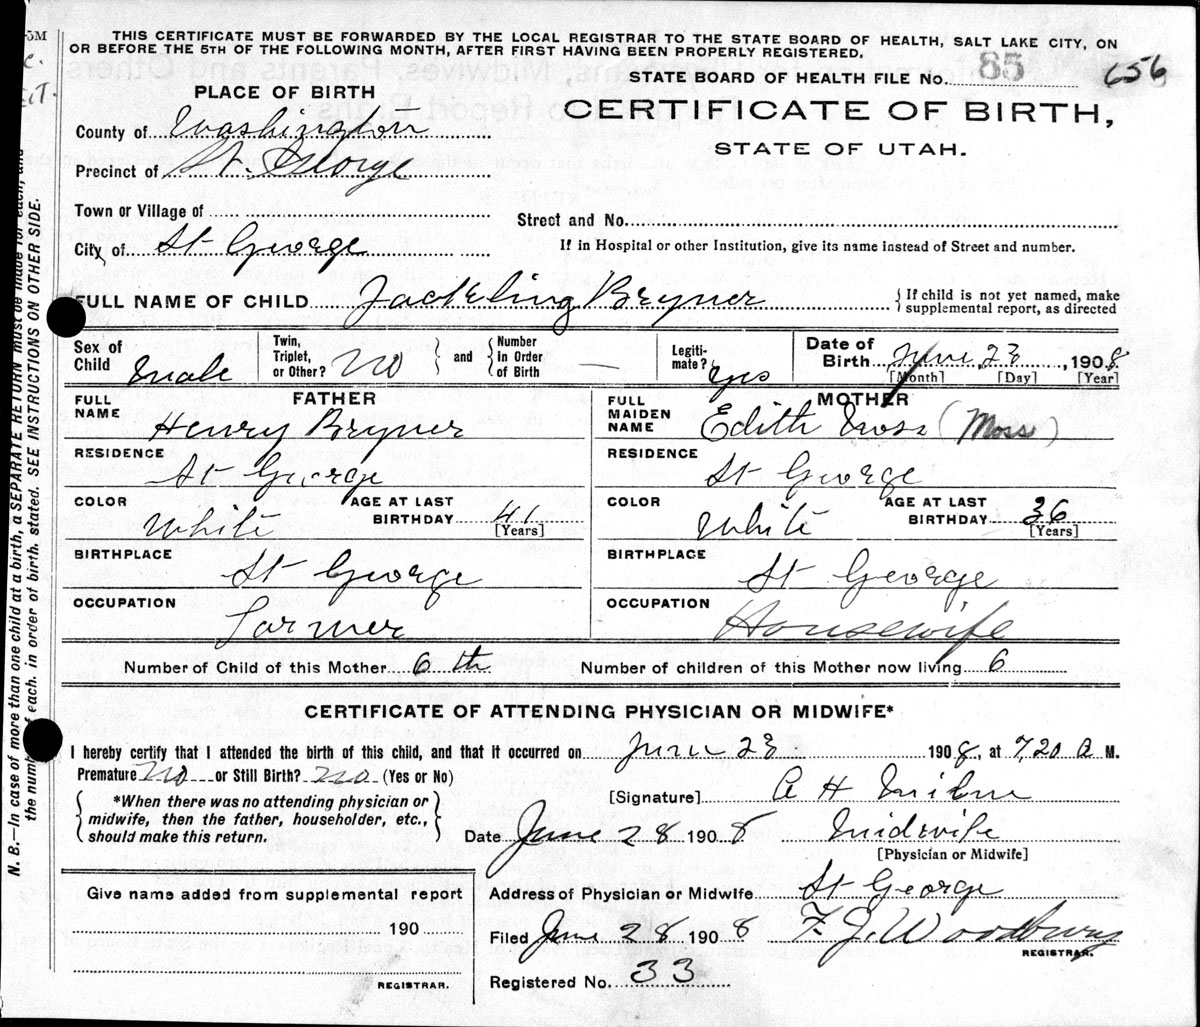 5M
THIS CERTIFICATE MUST BE FORWARDED BY THE LOCAL REGISTRAR TO THE STATE BOARD OF HEALTH, SALT LAKE CITY, ON
OR BEFORE THE 5TH OF THE FOLLOWING MONTH, AFTER FIRST HAVING BEEN PROPERLY REGISTERED.
STATE BOARD OF HEALTH FILE No. 85 656
PLACE OF BIRTH
CERTIFICATE OF BIRTH,
STATE OF UTAH.
County of Washington
Precinct of St. George
Town or Village of
Street and No.
City of St George
If in Hospital or other Institution, give its name instead of Street and number.
FULL NAME OF CHILD Jackling Bryner
If child is not yet named, make
supplemental report, as directed
Sex of Child male
Twin, Triplet, or Other? No
and
Number in Order of Birth —
Legiti-mate? yes
Date of Birth June, 28, 1908
[Month] [Day] [Year]
FATHER
FULL NAME Henry Bryner
RESIDENCE St George
COLOR White
AGE AT LAST BIRTHDAY 41 [Years]
BIRTHPLACE St George
OCCUPATION Farmer
MOTHER
FULL MAIDEN NAME Edith Moss (Moss)
RESIDENCE St George
COLOR White
AGE AT LAST BIRTHDAY 36 [Years]
BIRTHPLACE St George
OCCUPATION Housewife
Number of Child of this Mother 6th
Number of children of this Mother now living 6
CERTIFICATE OF ATTENDING PHYSICIAN OR MIDWIFE*
I hereby certify that I attended the birth of this child, and that it occurred on June 28 1908, at 7,20 a M.
Premature No or Still Birth? No (Yes or No)
[Signature] A H Milne
*When there was no attending physician or
midwife, then the father, householder, etc.,
should make this return.
Date June 28 1908
Midwife
[Physician or Midwife]
Give name added from supplemental report
190
REGISTRAR.
Address of Physician or Midwife St George
Filed June 28 1908 F. J. Woodbury
REGISTRAR.
Registered No. 33
N. B.—In case of more than one child at a birth, a SEPARATE RETURN must be made for each, and
the number of each, in order of birth, stated. SEE INSTRUCTIONS ON OTHER SIDE.